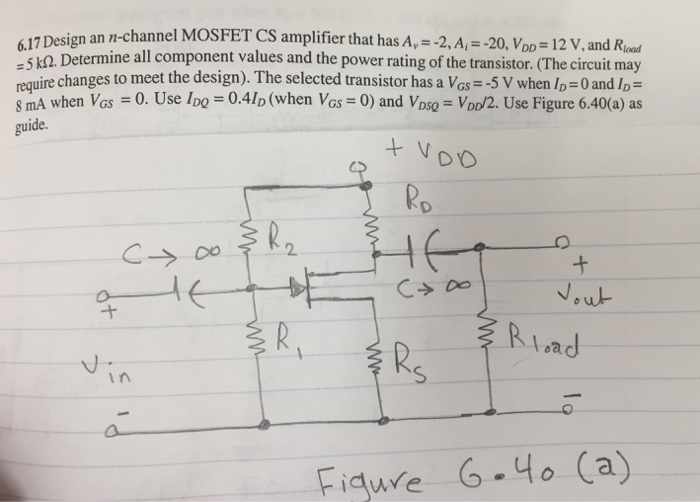 6.17 Design an n-channel MOSFET CS amplifier that has Av = -2, Ai = -20, VDD = 12 V, and Rload
= 5 kΩ. Determine all component values and the power rating of the transistor. (The circuit may
require changes to meet the design). The selected transistor has a VGS = -5 V when ID = 0 and ID =
8 mA when VGS = 0. Use IDQ = 0.4ID (when VGS = 0) and VDSQ = VDD/2. Use Figure 6.40(a) as
guide.
+ VDD
RD
R2
C → ∞
C → ∞
+
+
Vout
R1
Rload
Vin
RS
-
-
Figure 6.40 (a)